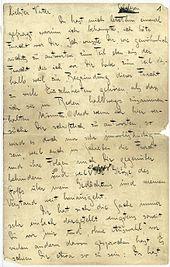 1
Liebster Vater
Du hast mich letzthin einmal
gefragt warum ich behaupte, ich hätte
Furcht vor Dir. Ich wusste Dir, wie gewöhnlich
nichts zu antworten, zum Teil eben aus der
Furcht die ich vor Dir habe, zum Teil des-
halb weil zur Begründung dieser Furcht
zu viele Einzelheiten gehören, als dass
ich sie im Reden halbwegs zusammen-
halten könnte. Und wenn ich hier ver-
suche Dir schriftlich zu antworten, so
wird es doch nur sehr unvollständig
sein, weil auch im Schreiben die Furcht
und ihre Folgen mich Dir gegenüber
behindern und weil Grösse des
Stoffs über mein Gedächtnis und meinen
Verstand weit hinausgeht.
Dir hat sich die Sache immer
sehr einfach dargestellt, wenigstens soweit
Du vor mir und, ohne Auswahl, vor
vielen andern davon gesprochen hast. Es
schien Dir etwa so zu sein: Du hast